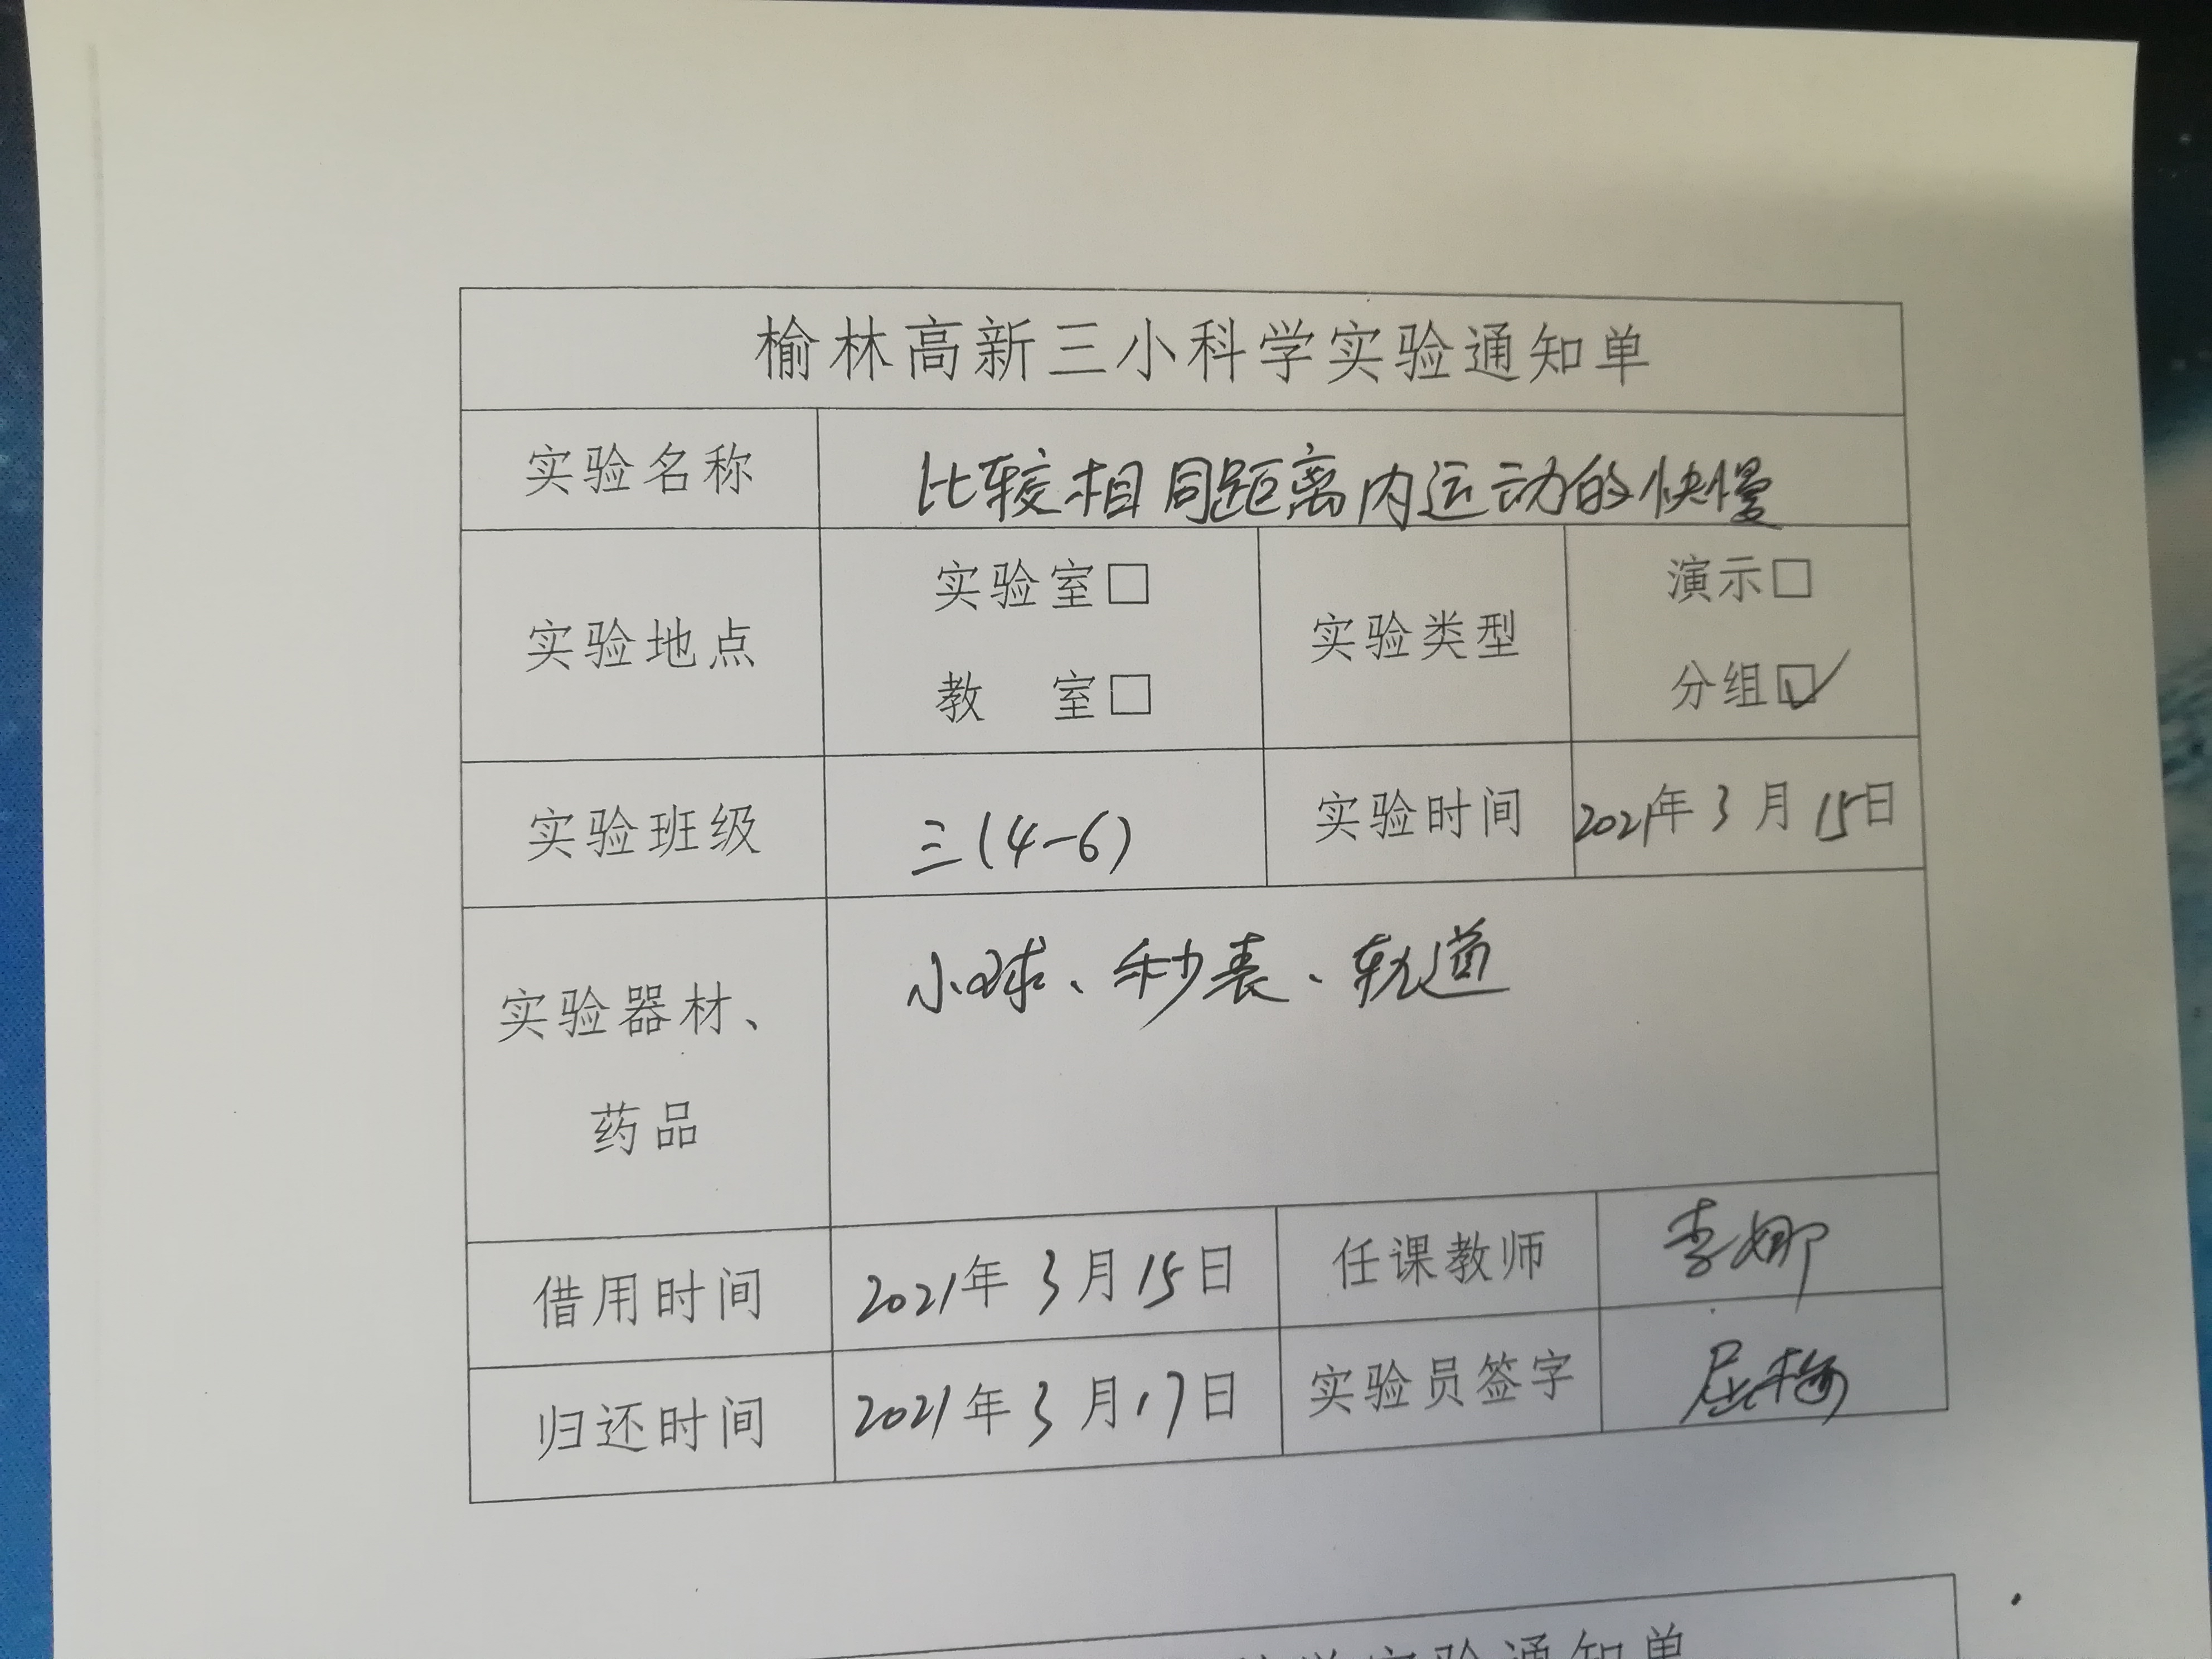 榆林高新三小科学实验通知单
实验名称 比较相同距离内运动的快慢
实验地点 实验室□ 教 室□ 实验类型 演示□ 分组☑
实验班级 三(4-6) 实验时间 2021年3月15日
实验器材、药品 小球、秒表、轨道
借用时间 2021年3月15日 任课教师 李娜
归还时间 2021年3月17日 实验员签字 屈梅
学实验通知单